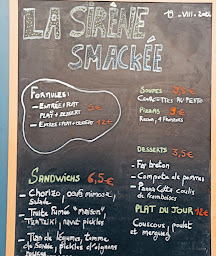 LA SIRÈNE
19-VIII-
SMACKÉE
FORMULES:
- ENTRÉE + PLAT
PLAT + DESSERT
- ENTRÉE + PLAT + DESSERT 12€
SOUPES 3,5€
COURGETTES AU PESTO
PIZZAS 9€
4 FROMAGES
DESSERTS 3,5€
- Far breton
- Compote de pommes
- Panna Cotta coulis
de framboises
SANDWICHS 6,5€
- Chorizo, oeufs mimosa,
salade
- Truite fumée "maison",
Tzatziki, navet pickles
- Tian de légumes, tomme
de Savoie, pickles d'oignons
rouges
PLAT DU JOUR 12€
Couscous, poulet
et merguez